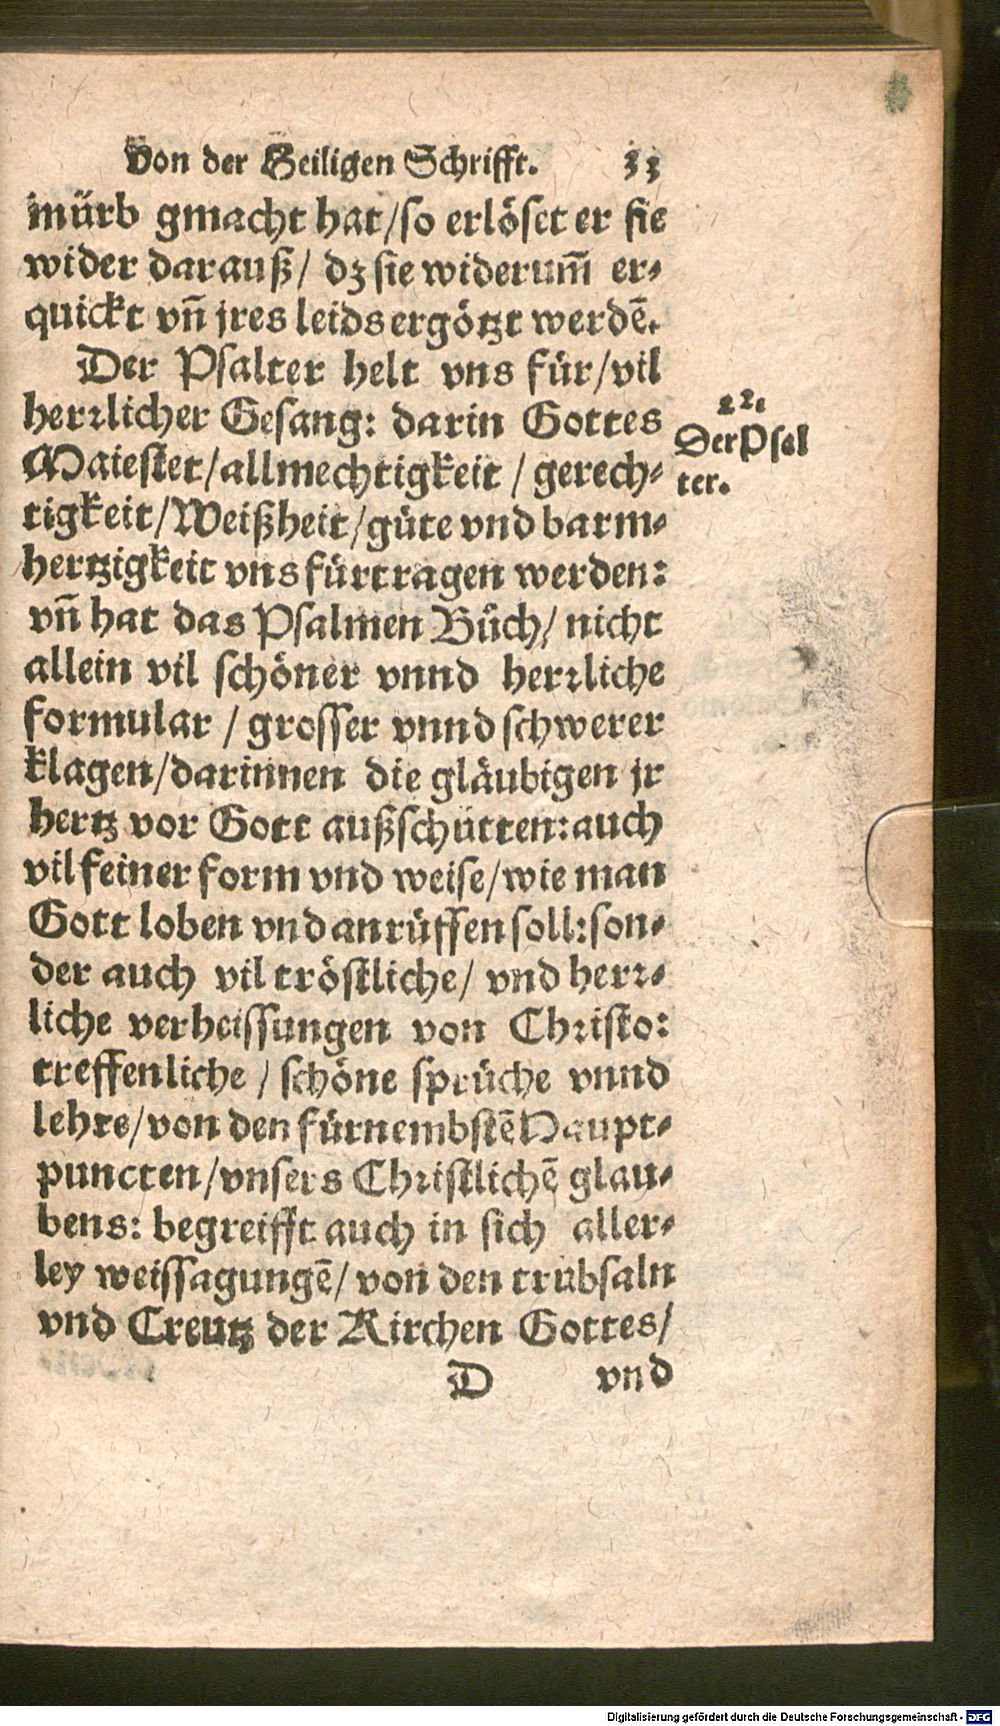 Von der Heiligen Schrifft. 33
mürb gmacht hat/so erlöset er sie
wider darauß/ dz sie widerum̃ er-
quickt vñ jres leids ergötzt werdẽ.
Der Psalter helt vns für/vil
herrlicher Gesang: darin Gottes
Maiestet/allmechtigkeit / gerech-
tigkeit/Weißheit/güte vnd barm-
hertzigkeit vns fürtragen werden:
vñ hat das Psalmen Bůch/ nicht
allein vil schöner vnnd herrliche
formular / grosser vnnd schwerer
klagen/darinnen die gläubigen jr
hertz vor Gott außschütten:auch
vil feiner form vnd weise/wie man
Gott loben vnd anrüffen soll:son-
der auch vil tröstliche/ vnd herr-
liche verheissungen von Christo:
treffenliche / schöne sprüche vnnd
lehre/von den fürnembstẽ Haupt-
puncten/vnsers Christlichẽ glau-
bens: begreifft auch in sich aller-
ley weissagungẽ/ von den trübsaln
vnd Creutz der Kirchen Gottes/
D vnd
22.
Der Psal
ter.
Digitalisierung gefördert durch die Deutsche Forschungsgemeinschaft - DFG